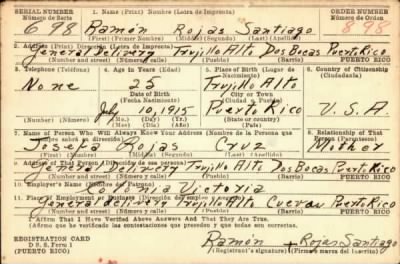 SERIAL NUMBER 1. Name (Print) Nombre (Letra de Imprenta) ORDER NUMBER
Número de Serie Número de Orden
698 Ramón Rojas Santiago 898
(First) (Primer Nombre) (Middle) (Segundo) (Last) (Apellido)
2. Address (Print) Dirección (Letra de Imprenta)
General delivery Trujillo Alto Dos Bocas Puerto Rico
(Number and street) (Número y calle) (Town) (Pueblo) PUERTO RICO
3. Telephone (Teléfono) 4. Age in Years (Edad) 5. Place of Birth (Lugar de Nacimiento) 6. Country of Citizenship (Ciudadanía)
None 25 Trujillo Alto
Date of Birth
(Fecha Nacimiento)
10, 1915 Puerto Rico U.S.A.
(State or country)
7. Name of Person Who Will Always Know Your Address (Nombre de la Persona que 8. Relationship of That Person (Parentesco)
Josefa Rojas Cruz Mother
(Middle) (Segundo) (Last) (Apellido)
9. Address of That Person (Dirección de esa persona)
General delivery Trujillo Alto Dos Bocas Puerto Rico
(Number and street) (Número y calle) (Town) (Pueblo) PUERTO RICO
10. Employer's Name (Nombre del Patrono)
Colonia Victoria
11. Place of Employment or Business (Dirección del empleo
General delivery Trujillo Alto Cuevas Puerto Rico
(Number and street) (Número y calle) (Town) (Pueblo) PUERTO RICO
I Affirm That I Have Verified Above Answers And That They Are True.
(Afirmo que he verificado las contestaciones que preceden y que todas son correctas.
REGISTRATION CARD
D. S. S. Form 1
PUERTO RICO
Ramón + Rojas Santiago
(Registrant's signature) (Firma o marca del inscrito)